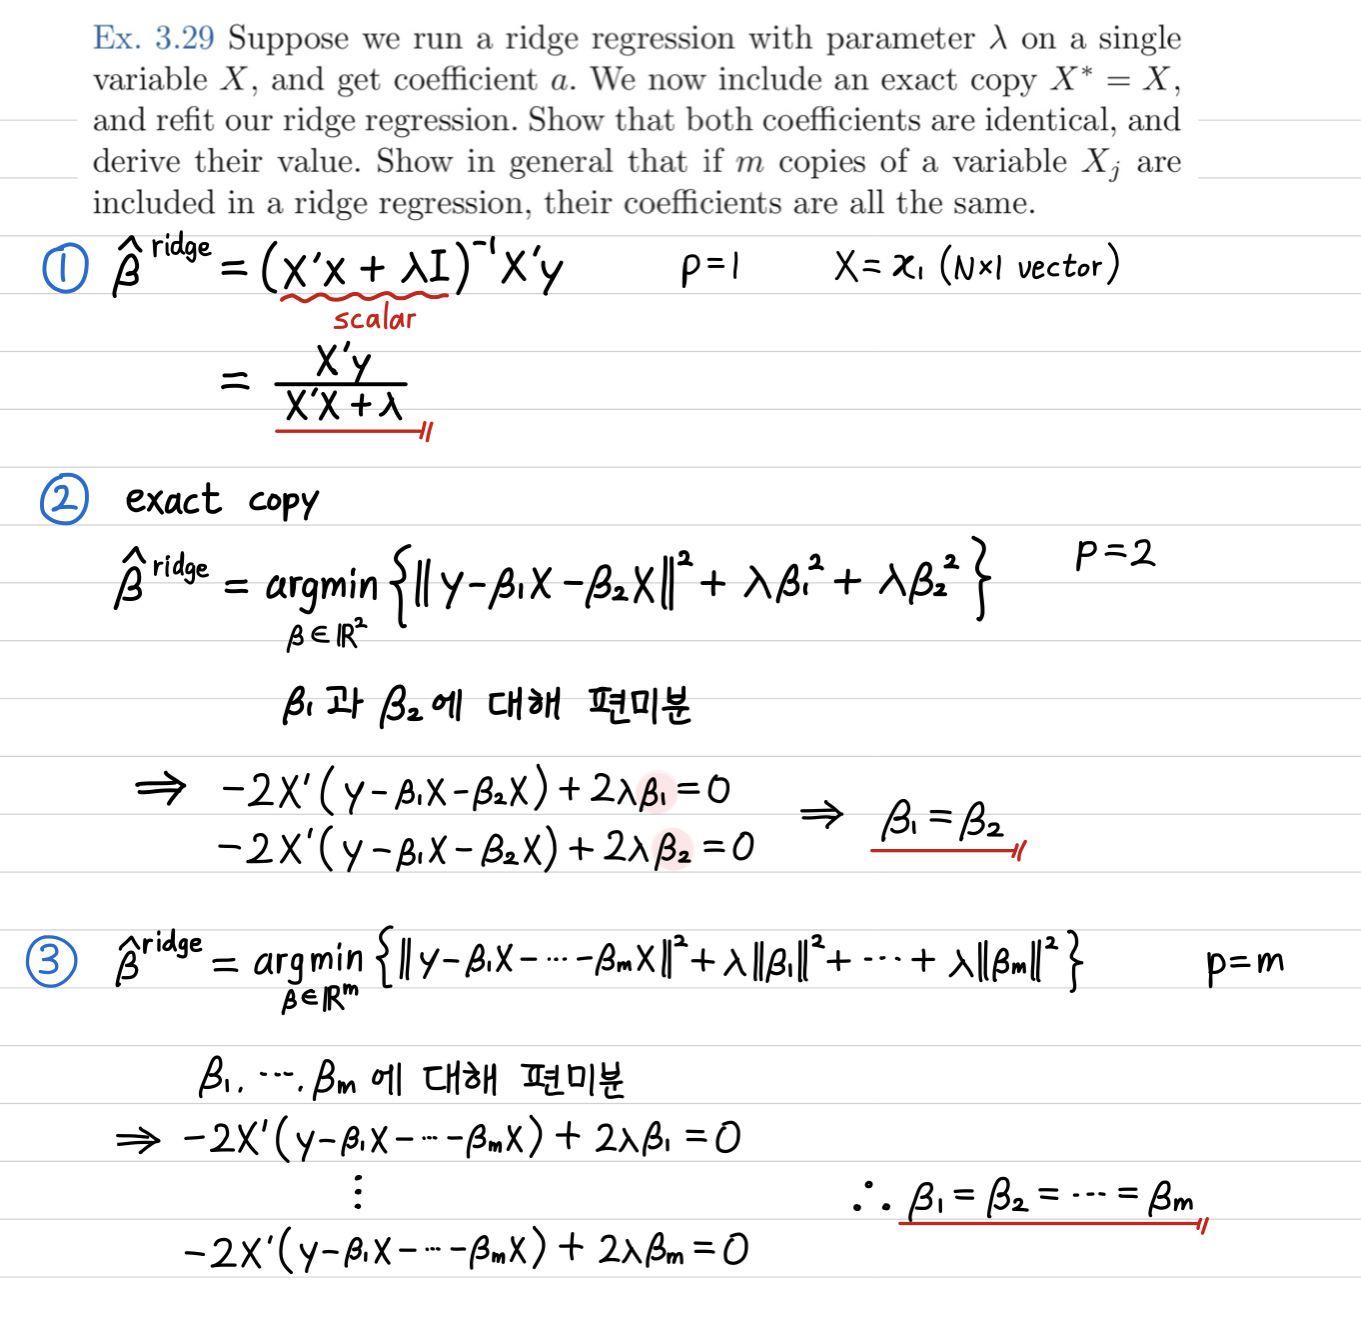 Ex. 3.29 Suppose we run a ridge regression with parameter λ on a single
variable X, and get coefficient a. We now include an exact copy X* = X,
and refit our ridge regression. Show that both coefficients are identical, and
derive their value. Show in general that if m copies of a variable X_j are
included in a ridge regression, their coefficients are all the same.
① β̂^ridge = (X'X + λI)^-1 X'y p=1 X = x₁ (N×1 vector)
scalar
= X'y / X'X + λ
② exact copy
β̂^ridge = argmin {‖y-β₁X-β₂X‖² + λβ₁² + λβ₂²} p=2
β∈ℝ²
β₁과 β₂에 대해 편미분
⇒ -2X'(y-β₁X-β₂X)+2λβ₁=0
-2X'(y-β₁X-β₂X)+2λβ₂=0 ⇒ β₁=β₂
③ β̂^ridge = argmin {‖y-β₁X-⋯-βmX‖²+λ‖β₁‖²+⋯+λ‖βm‖²} p=m
β∈ℝ^m
β₁.⋯.βm에 대해 편미분
⇒ -2X'(y-β₁X-⋯-βmX)+2λβ₁=0
⋮
∴ β₁=β₂=⋯=βm
-2X'(y-β₁X-⋯-βmX)+2λβm=0